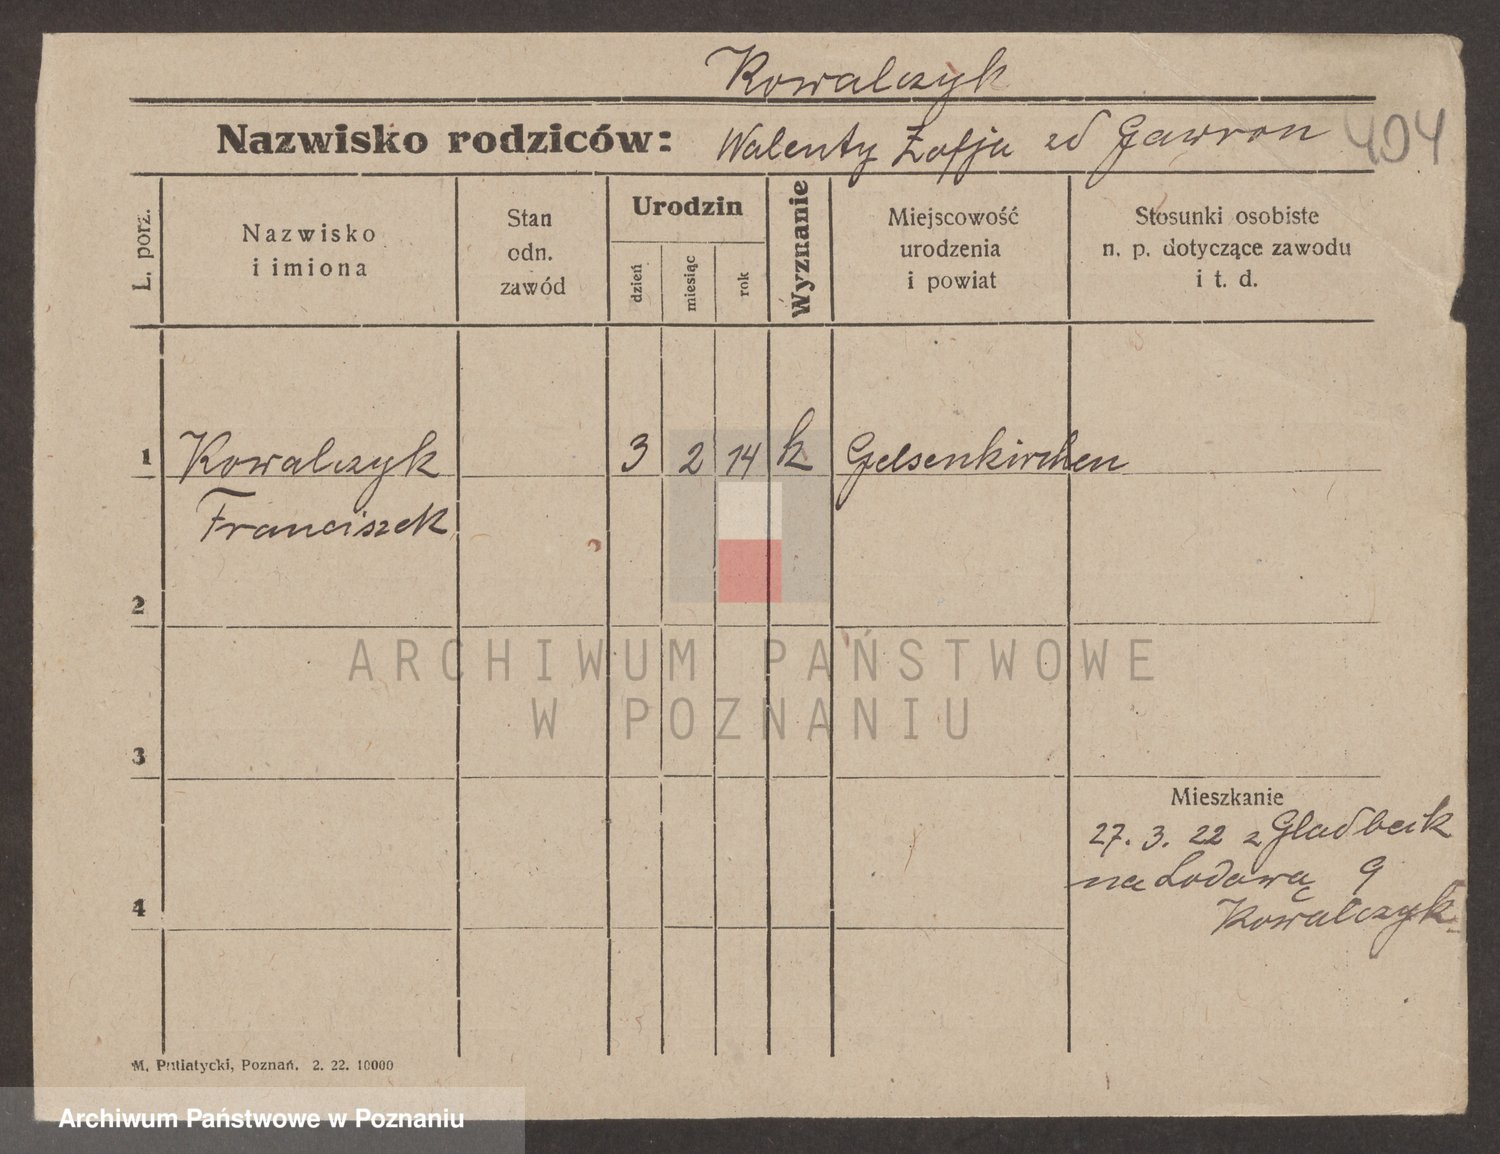 Kowalczyk
Nazwisko rodziców: Walenty Zofja zd Gawron 404
L. porz.
Nazwisko
i imiona
Stan
odn.
zawód
Urodzin
dzień
miesiąc
rok
Wyznanie
Miejscowość
urodzenia
i powiat
Stosunki osobiste
n. p. dotyczące zawodu
i t. d.
1 Kowalczyk 3 2 14 k Gelsenkirchen
Franciszek
2
ARCHIWUM PAŃSTWOWE
W POZNANIU
3
Mieszkanie
27. 3. 22 z Gladbeck
na Lodową 9
4
Kowalczyk
M. Putiatycki, Poznań. 2. 22. 10000
Archiwum Państwowe w Poznaniu